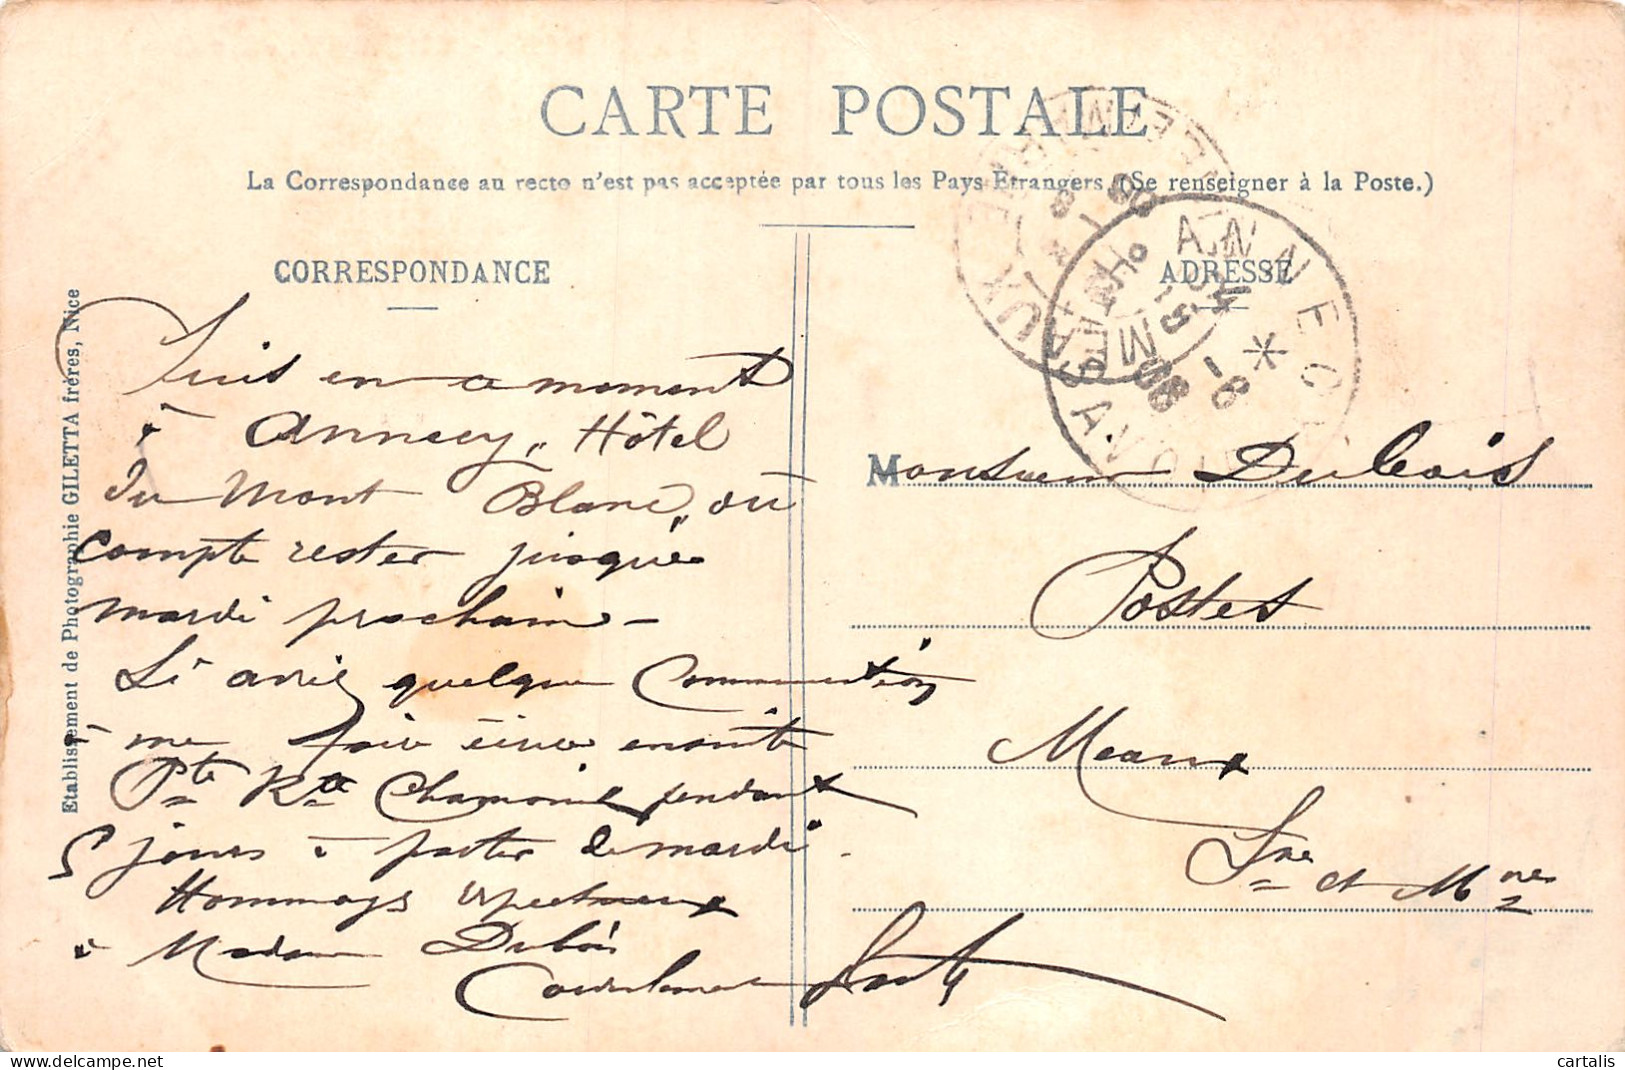 CARTE POSTALE
La Correspondance au recto n'est pas acceptée par tous les Pays Etrangers. (Se renseigner à la Poste.)
CORRESPONDANCE
ADRESSE
Etablissement de Photographie GILETTA frères, Nice
Suis en ce moment
à Annecy, Hôtel
du Mont Blanc, où
compte rester jusqu'à
mardi prochain -
Si aviez quelque
à me faire ensuite
Pte Rte Chamonix pendant
5 jours à partir de mardi.
Hommages respectueux
à Madame Dubois
Cordialement
Monsieur Dubois
Postes
Meaux
Sne et Mne
ANNECY
HTE SAVOIE
MEAUX
SEINE ET MARNE
cartalis